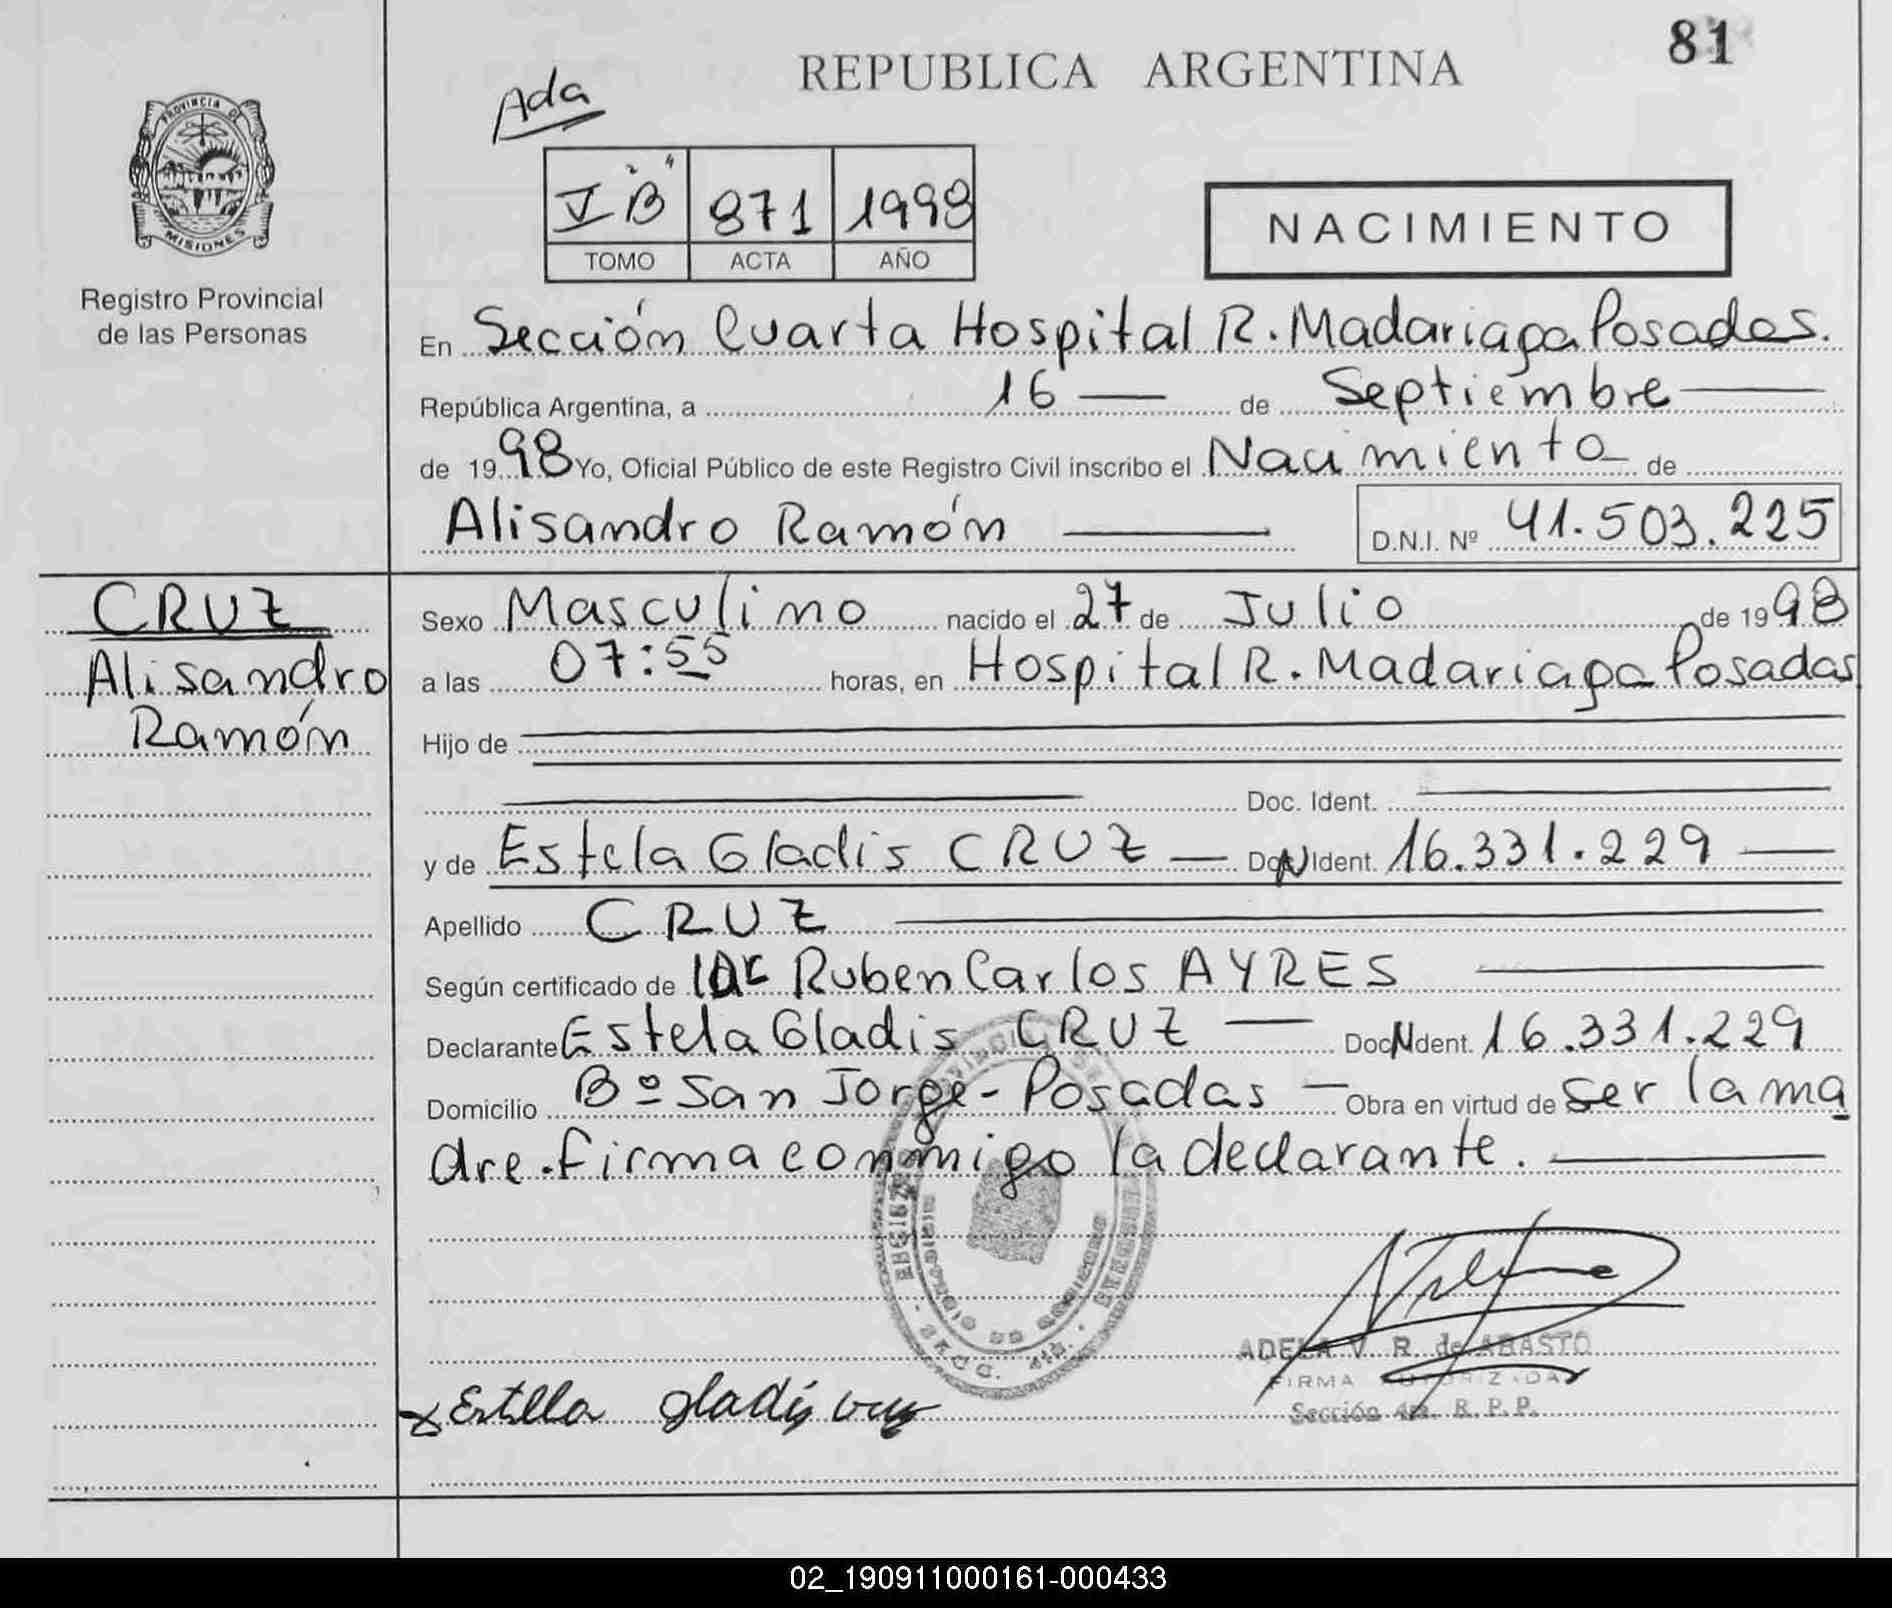 81
REPUBLICA ARGENTINA
Ada
V "B" 871 1998
TOMO ACTA AÑO
NACIMIENTO
PROVINCIA DE MISIONES
Registro Provincial
de las Personas
En Sección Cuarta Hospital R. Madariaga Posadas.
República Argentina, a 16 — de Septiembre —
de 1998 Yo, Oficial Público de este Registro Civil inscribo el Nacimiento de
Alisandro Ramón — D.N.I. Nº 41.503.225
CRUZ
Alisandro
Ramón
Sexo Masculino nacido el 27 de Julio de 1998
a las 07:55 horas, en Hospital R. Madariaga Posadas
Hijo de
Doc. Ident.
y de Estela Gladis CRUZ — Doc. Ident. 16.331.229 —
Apellido CRUZ
Según certificado de Dr Ruben Carlos AYRES
Declarante Estela Gladis CRUZ — Doc. Ident. 16.331.229
Domicilio Bº San Jorge - Posadas — Obra en virtud de ser la ma
dre. firma conmigo la declarante.
ADELA V. R. de ABASTO
FIRMA AUTORIZADA
Sección 4ta. R. P. P.
x Estella gladis cruz
02_190911000161-000433